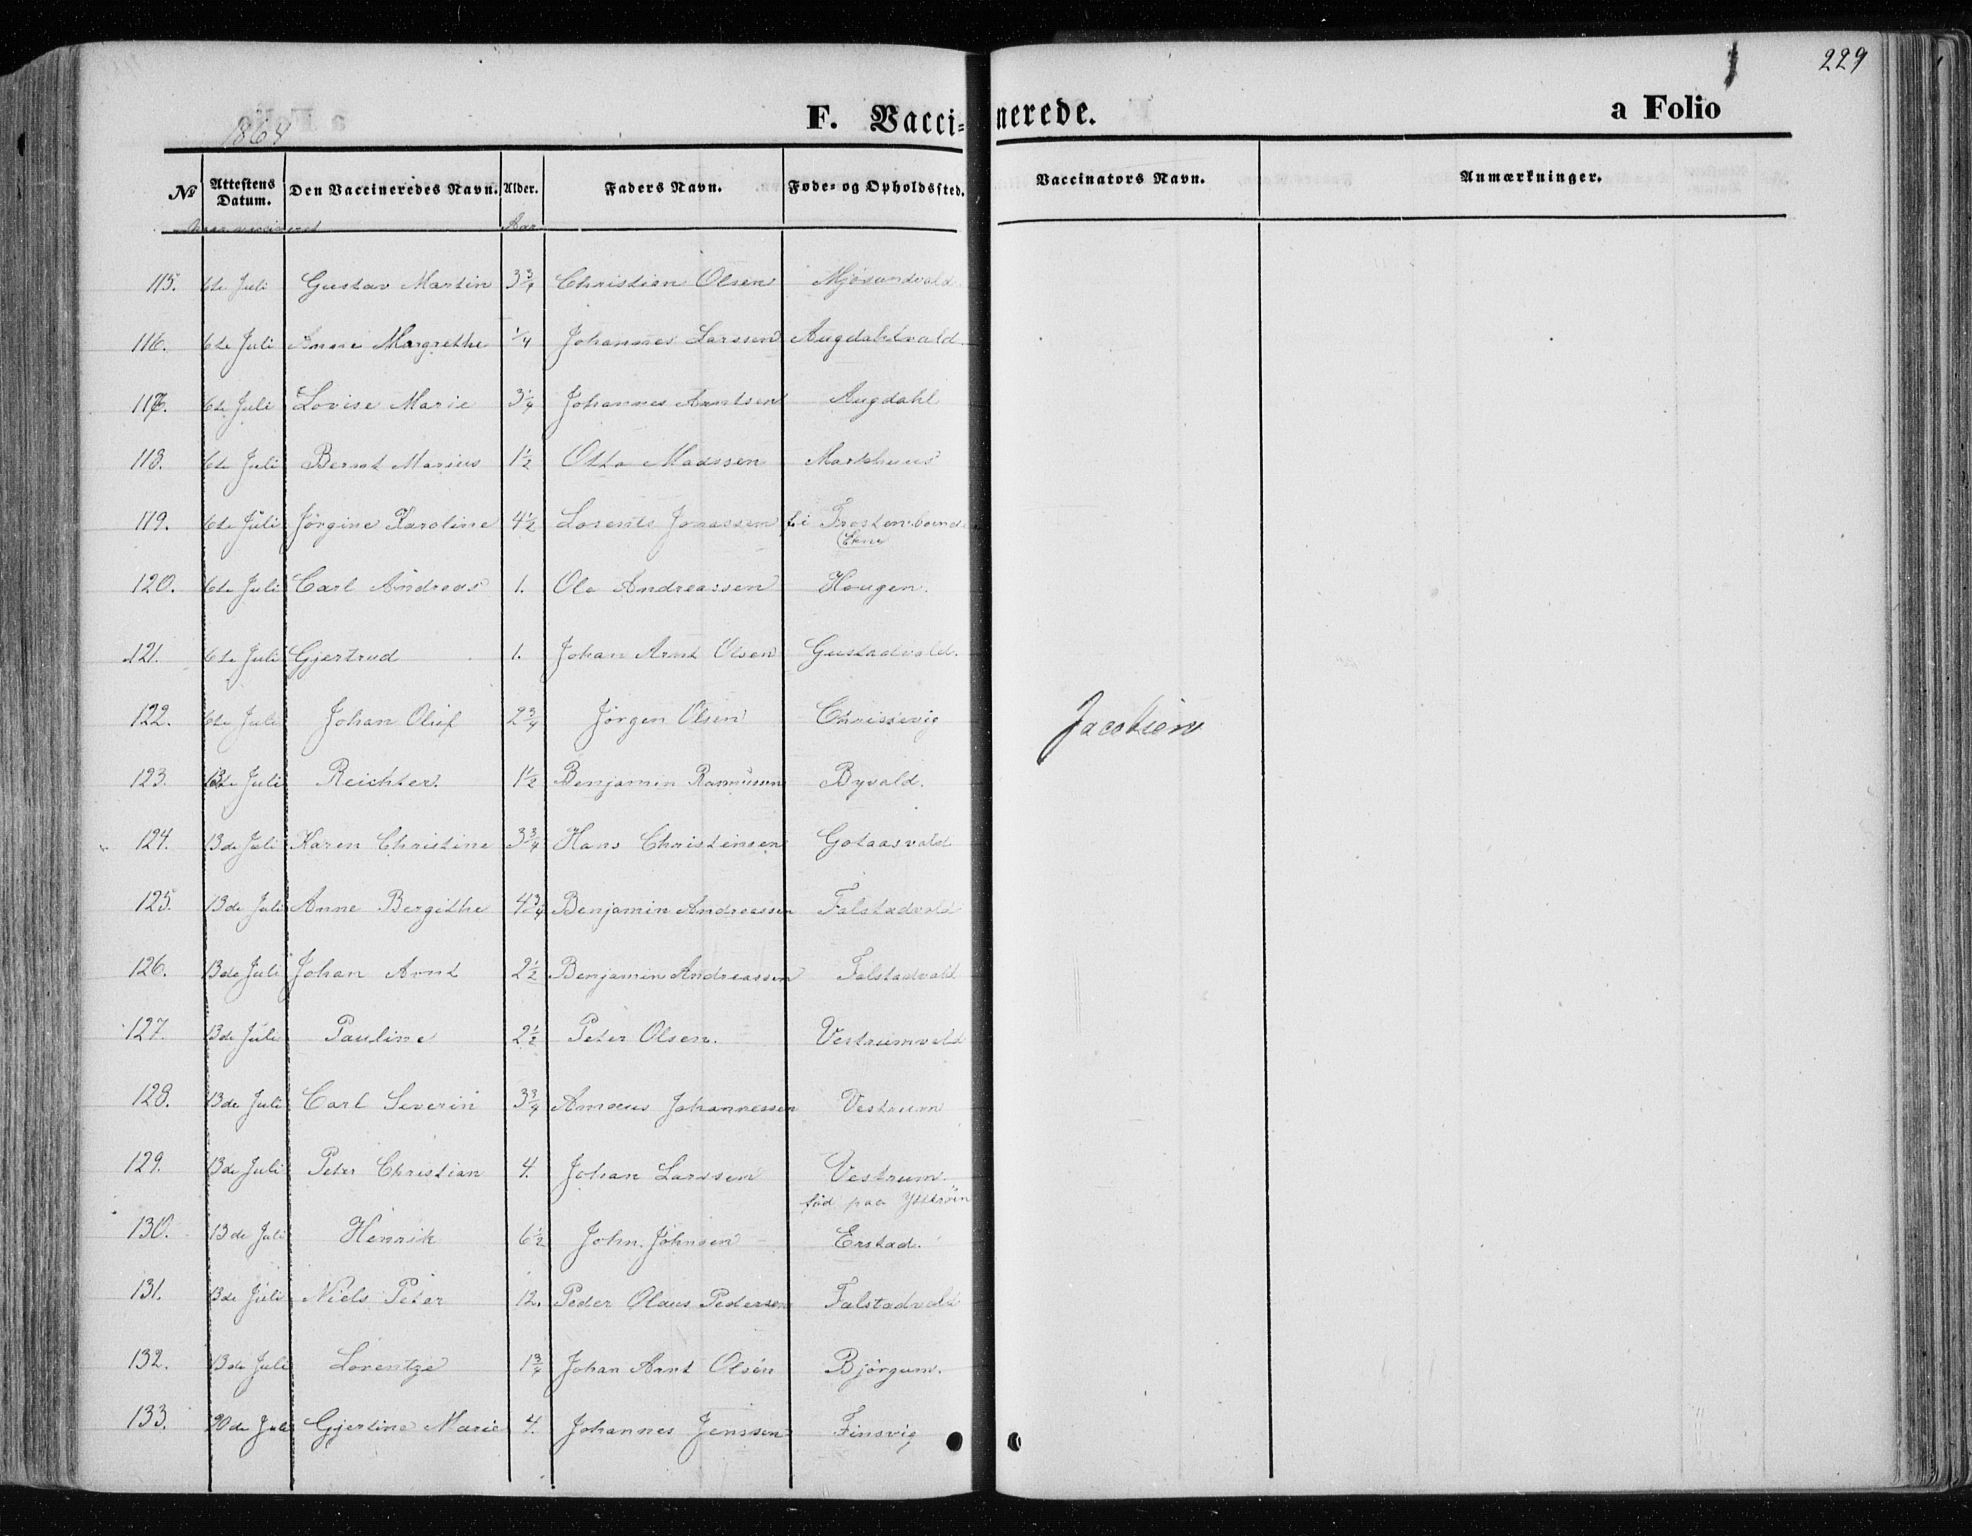 229
F. Vaccinerede. a Folio
1864
No Attestens Datum. Den Vaccineredes Navn. Alder. Faders Navn. Føde- og Opholdssted. Vaccinators Navn. Anmærkninger.
Aar
115. 6te Juli Gustav Martin 3 3/4 Christian Olsen Mjösundvald
116. 6te Juli Anne Margrethe 1/4 Johannes Larssen Augdahlvald
117. 6te Juli Lovise Marie 3 1/4 Johannes Arntsen Augdahl
118. 6te Juli Bernt Marius 1 1/2 Otto Madssen Markhuus
119. 6te Juli Jörgine Karoline 4 1/2 Lorents Jonassen f. i Frosten
Ekne
120. 6te Juli Carl Andreas 1. Ole Andreassen Hougen.
121. 6te Juli Gjertrud 1. Johan Arnt Olsen Gustadvald.
122. 6te Juli Johan Oluf 2 3/4 Jörgen Olsen Jacobsen
123. 13de Juli Reichter. 1 1/2 Benjamin Rasmussen Byvald.
124. 13de Juli Karen Christine 3 3/4 Hans Christensen Gotaasvald
125. 13de Juli Anne Bergithe 4 3/4 Benjamin Andreassen Falstadvald
126. 13de Juli Johan Arnt 2 1/2 Benjamin Andreassen Falstadvald
127. 13de Juli Pauline 2 1/2 Peter Olsen. Vestrumvald
128. 13de Juli Carl Severin 3 3/4 Johannessen Vestrum
129. 13de Juli Peter Christian 4. Johan Larssen Vestrum
född paa Ytterøen
130. 13de Juli Henrik 6 1/2 John Johnsen Erstad.
131. 13de Juli Niels Peter 12. Peder Olaus Pedersen Falstadvald
132. 13de Juli Lorentze 1 3/4 Johan Arnt Olsen Björgum.
133. 20de Juli Gjertine Marie 4. Johannes Jenssen Finsvig